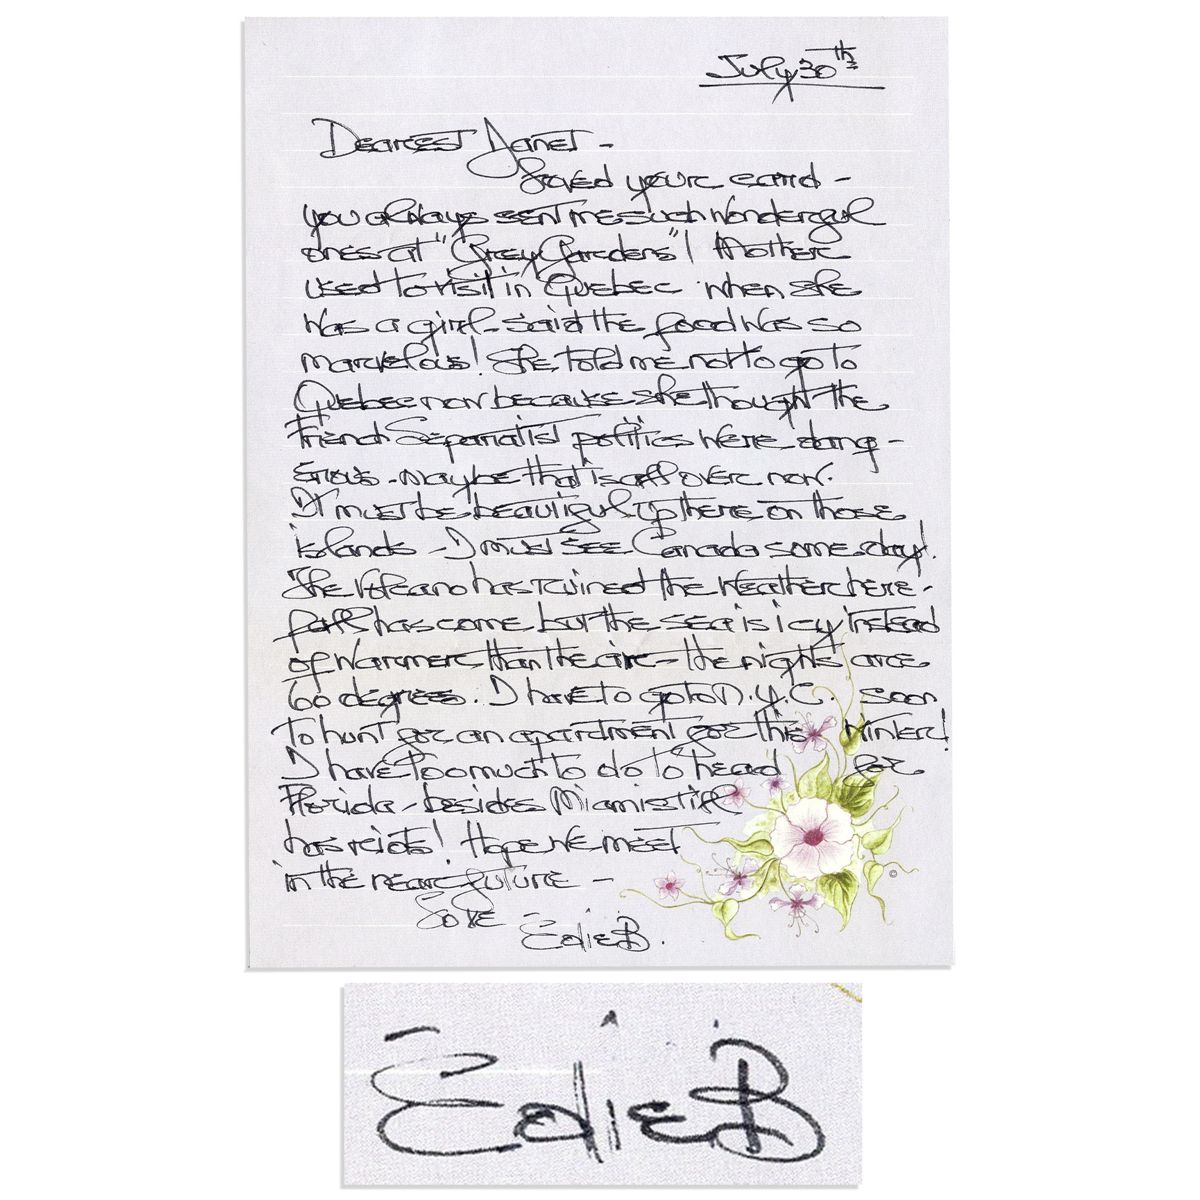 July 30th
Dearest Janet -
Loved your card -
you always sent me such wonderful
ones at "Grey Gardens"! Mother
used to visit in Quebec when she
was a girl - said the food was so
marvelous! She told me not to go to
Quebec now because she thought the
French Separatist politics were dang -
erous - maybe that is all over now.
It must be beautiful up there on those
islands - I must see Canada some day!
The Volcano has ruined the weather here -
fall has come but the sea is icy instead
of warmer than the air - the nights are
60 degrees. I have to go to N.Y.C. soon
to hunt for an apartment for this winter!
I have too much to do to head for
Florida - besides Miami still
has riots! Hope we meet
in the near future -
Love
Edie B.
©
Edie B